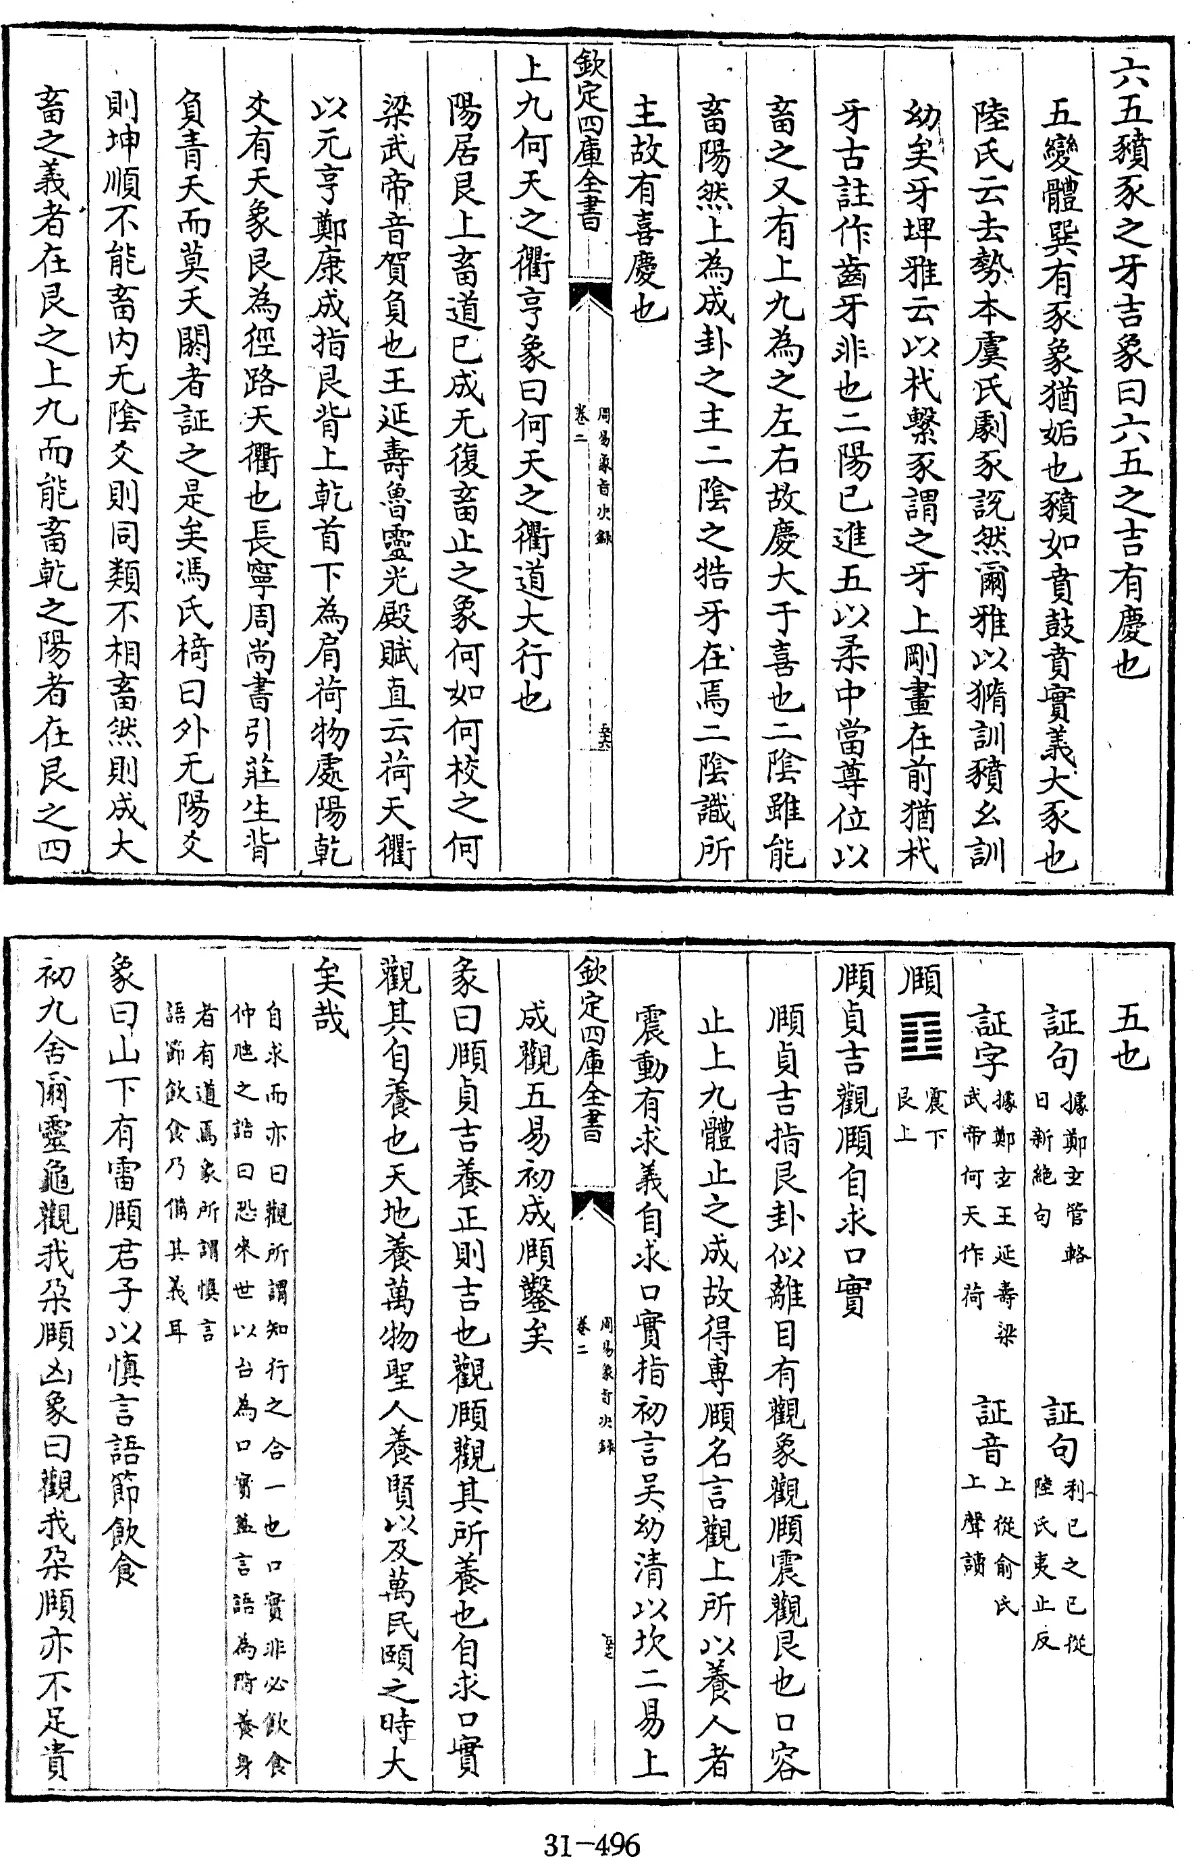 六五豶豕之牙吉象曰六五之吉有慶也
五變體巽有豕象猶姤也豶如賁鼓賁實義大豕也
陸氏云去勢本虞氏劇豕説然爾雅以豮訓豶幺訓
幼矣牙埤雅云以杙繫豕謂之牙上剛畫在前猶杙
牙古註作齒牙非也二陽已進五以柔中當尊位以
畜之又有上九為之左右故慶大于喜也二陰雖能
畜陽然上為成卦之主二陰之牿牙在焉二陰識所
主故有喜慶也
欽定四庫全書
周易象旨決録
卷二
上九何天之衢亨象曰何天之衢道大行也
陽居艮上畜道已成无復畜止之象何如何校之何
梁武帝音賀負也王延壽魯靈光殿賦直云荷天衢
以元亨鄭康成指艮背上乾首下為肩荷物處陽乾
爻有天象艮為徑路天衢也長寧周尚書引莊生背
負青天而莫夭閼者証之是矣馮氏椅曰外无陽爻
則坤順不能畜内无陰爻則同類不相畜然則成大
畜之義者在艮之上九而能畜乾之陽者在艮之四
五也
証句 據鄭玄管輅
日新絶句
証句 利已之已從
陸氏夷止反
証字 據鄭玄王延壽梁
武帝何天作荷
証音 上從俞氏
上聲讀
頤 震下
艮上
頤貞吉觀頤自求口實
頤貞吉指艮卦似離目有觀象觀頤震觀艮也口容
止上九體止之成故得專頤名言觀上所以養人者
震動有求義自求口實指初言吳幼清以坎二易上
成觀五易初成頤鑿矣
欽定四庫全書
周易象旨決録
卷二
彖曰頤貞吉養正則吉也觀頤觀其所養也自求口實
觀其自養也天地養萬物聖人養賢以及萬民頤之時大
矣哉
自求而亦曰觀所謂知行之合一也口實非必飲食
仲虺之誥曰恐來世以台為口實蓋言語為所養身
者有道焉象所謂慎言
語節飲食乃備其義耳
象曰山下有雷頤君子以慎言語節飲食
初九舍爾靈龜觀我朶頤凶象曰觀我朶頤亦不足貴
31-496